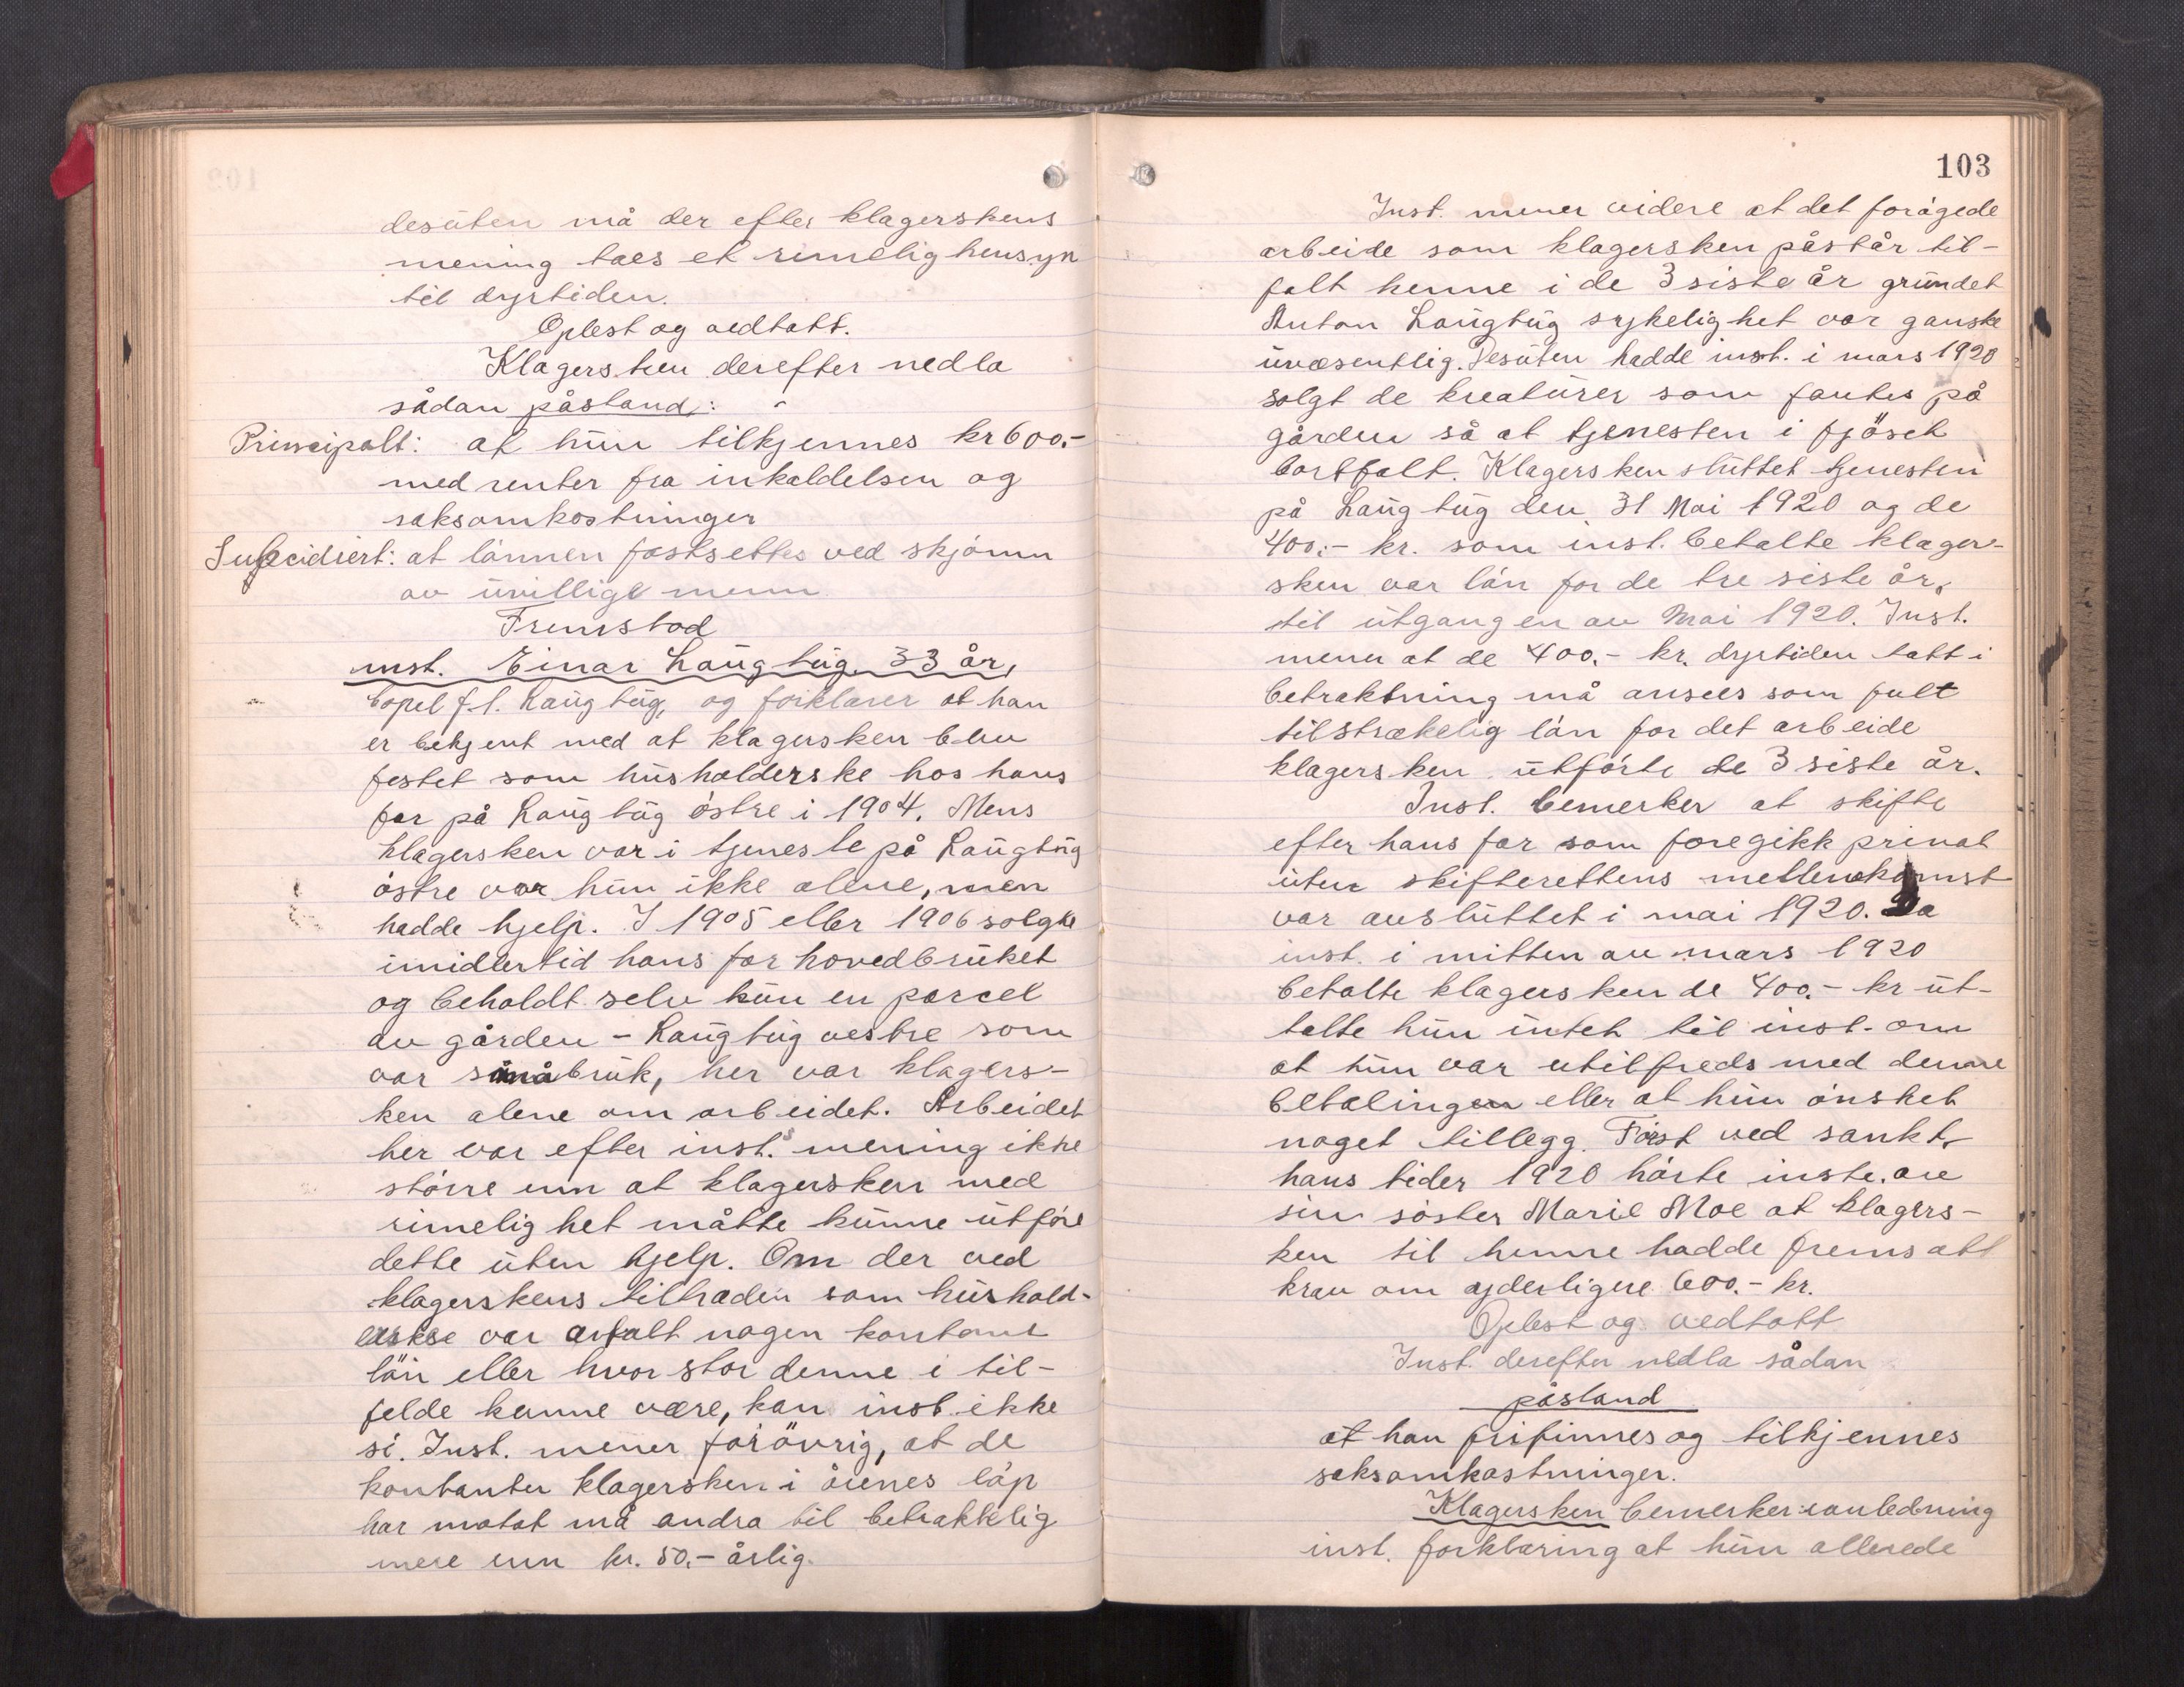 desuten må der efter klagerskens
mening taes et rimelig hensyn
til dyrtiden.
Oplest og vedtatt.
Klagersken derefter nedla
sådan påstand:
Principalt: at hun tilkjennes kr 600.-
med renter fra inkaldelsen og
saksomkostninger
Subcidiert: at lönnen fastsettes ved skjönn
av uvillige menn.
Fremstod
inst. Einar Laugtug, 33 år,
bopel f.l. Laugtug, og forklarer at han
er bekjent med at klagersken blev
festet som husholderske hos hans
far på Laugtug östre i 1904. Mens
klagersken var i tjeneste på Laugtug
östre var hun ikke alene, men
hadde hjelp. I 1905 eller 1906 solgte
imidlertid hans far hovedbruket
og beholdt selv kun en parcel
av gården - Laugtug vestre som
var småbruk, her var klagers-
ken alene om arbeidet. Arbeidet
her var efter inst.s mening ikke
större enn at klagersken med
rimelighet måtte kunne utföre
dette uten hjelp. Om der ved
klagerskens tiltræden som hushold-
erske var avtalt nogen kontant
lön eller hvor stor denne i til-
felde kunne være, kan inst. ikke
si. Inst. mener forövrig, at de
kontanter klagersken i årenes löp
har motat må andra til betraktelig
mere enn kr. 50.- årlig.
103
Inst. mener videre at det forögede
arbeide som klagersken påstår til-
falt henne i de 3 siste år grundet
Anton Laugtug sykelighet var ganske
uvæsentlig. Desuten hadde inst. i mars 1920
solgt de kreaturer som fantes på
gården så at tjenesten i fjöset
bortfalt. Klagersken sluttet tjenesten
på Laugtug den 31 Mai 1920 og de
400.- kr. som inst. betalte klager-
sken var lön for de tre siste år,
til utgangen av Mai 1920. Inst.
mener at de 400.- kr. dyrtiden tatt i
betraktning må ansees som fult
tilstrækelig lön for det arbeide
klagersken utförte de 3 siste år.
Inst. bemerker at skifte
efter hans far som foregikk privat
uten skifterettens mellemkomst
var avsluttet i mai 1920. Da
inst. i mitten av mars 1920
betalte klagersken de 400.- kr ut-
talte hun intet til inst. om
at hun var utilfreds med denne
betalingen eller at hun önsket
noget tillegg. Först ved sankt.
hans tider 1920 hörte inste. av
sin söster Marie Moe at klagers-
ken til henne hadde fremsatt
krav om yderligere 600.- kr.
Oplest og vedtatt
Inst. derefter nedla sådan
påstand
at han frifinnes og tilkjennes
saksomkostninger.
Klagersken bemerker i anledning
inst. forklaring at hun allerede